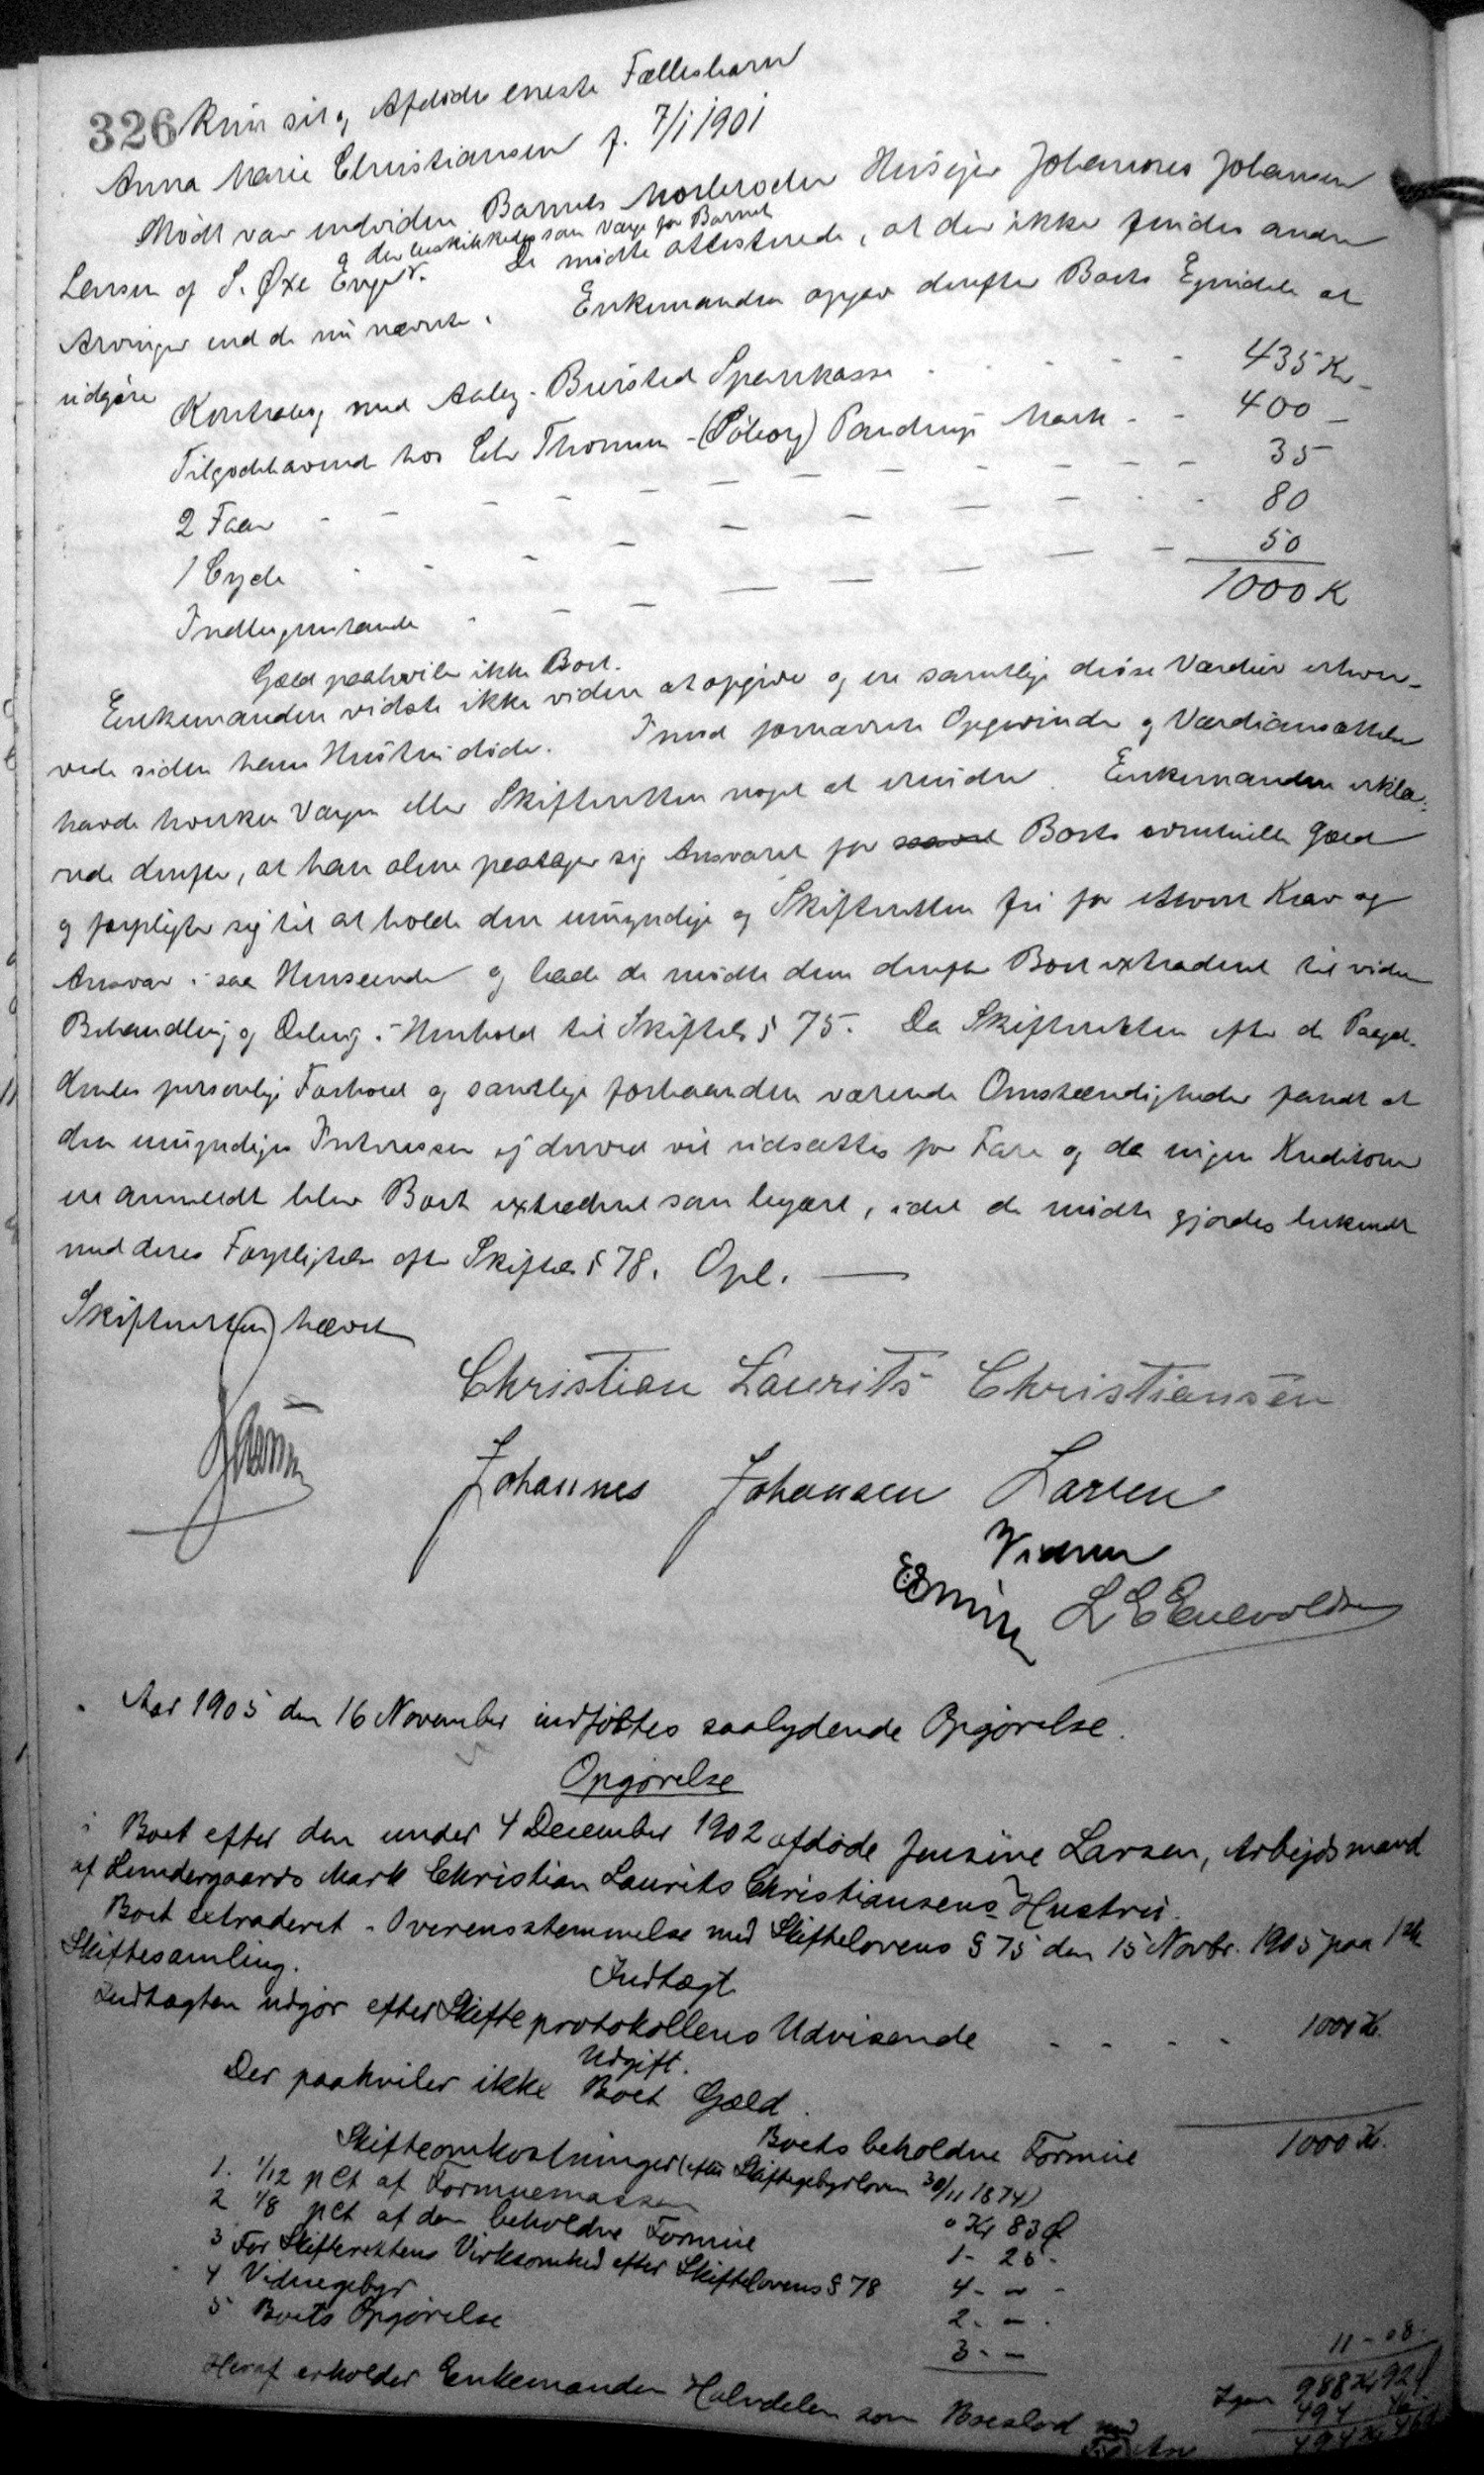 326 kun sit og Afdødes eneste Fællesbarn
Anna Marie Christiansen f. 7/1 1901
Mødt var endvidere Barnets Morbroder Husejer Johannes Johansen
og der beskikkedes som Værge for Barnet
Larsen af S. Øxe Enge. De mødte attesterede, at der ikke findes andre
Arvinger end de nu nævnte. Enkemanden opgav derefter Boets Ejendele at
udgøre
Kontrabog med Aaby-Biersted Sparekasse - - - 435 Kr -
Tilgodehavende hos Chr Thomsen - (Søborg) Pandrup Mark - - 400 -
2 Faar - - - - - - - 35
1 Cycle - - - - - - - 80
Indbogenstande - - - - - 50
1000 K
Gæld paahviler ikke Boet.
Enkemanden vidste ikke videre at opgive og ere samtlige disse Værdier erhver-
vede siden hans Hustru døde. Imod fornævnte Opgivende og Værdiansættelse
havde hverken Værgen eller Skifteretten noget at erindre. Enkemanden erklæ-
rede derefter, at han alene paatager sig Ansvaret for Boets eventuelle Gæld
og forpligter sig til at holde den umyndige og Skifteretten fri for ethvert Krav og
Ansvar i saa Henseende og bade de mødte dem derefter Boet extraderet til videre
Behandling og Deling i Henhold til Skiftel § 75. Da Skifteretten efter de Paagæl-
dendes personlige Forhold og samtlige forhaanden værende Omstændigheder fandt at
den umyndiges Interesser ej derved vil udsættes for Fare og da ingen Kreditorer
er anmeldt blev Boet extraderet som begært, idet de mødte gjordes bekendt
med deres Forpligtelse efter Skiftel § 78. Opl. —
Skifteretten hævet
Christian Laurits Christiansen
Johannes Johansen Larsen
Vidner
L E Enevoldsen
Aar 1905 den 16 November indførtes saalydende Opgørelse.
Opgørelse
i Boet efter den under 4 December 1902 afdøde Jensine Larsen, Arbejdsmand
af Lundergaards Mark Christian Laurits Christiansens Hustru.
Boet extraderet i Overensstemmelse med Skiftelovens § 75 den 15 Novbr. 1905 paa 1ste
Skiftesamling.
Indtægt
Indtægten udgør efter Skifteprotokollens Udvisende - - - - 1000 K.
Udgift.
Der paahviler ikke Boet Gæld.
Boets beholdne Formue 1000 K.
Skifteomkostninger (efter Skiftegebyrloven 30/11 1874)
1. 1/12 pCt af Formuemassen 0 Kr 83 Ø
2 1/8 pCt af den beholdne Formue 1 - 25 -
3 For Skifterettens Virksomhed efter Skiftelovens § 78 4 - " -
4 Vidnegebyr 2 - " -
5 Boets Opgørelse 3 - "
11 - 08 -
Igen 988 Kr 92 Ø
Heraf erholder Enkemanden Halvdelen som Boeslod med 494 - 46 -
Til Arv 494 Kr 46 Ø